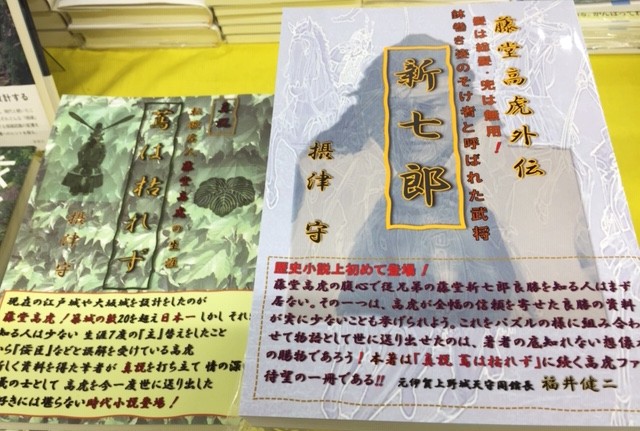 藤堂高虎外伝
髪は総髪・兜は無用！
鉢巻き姿のそけ者と呼ばれた武将
新七郎
摂津守
歴史小説上初めて登場！
藤堂高虎の腹心で従兄弟の藤堂新七郎良勝を知る人はまず
居ない。その一つは、高虎が全幅の信頼を寄せた良勝の資料
が実に少ないことも挙げられよう。これをパズルの様に組み合わ
せて物語として世に送り出せたのは、著者の底知れない想像
の賜物であろう！本著は「真説 蔦は枯れず」に続く高虎ファ
待望の一冊である!!
元伊賀上野城天守閣館長 福井健二
真説
藤堂高虎の生涯
蔦は枯れず
摂津守
現在の江戸城や大坂城を設計をしたのが
藤堂高虎！築城の数20を超え日本一！しかしそれ
知る人は少ない 生涯7度の『主』替えをしたこと
から『佞臣』などと誤解を受けている高虎
新しく資料を得た筆者が 真説を打ち立て 情の深
義の士として 高虎を今一度世に送り出した
好きには堪らない時代小説登場！